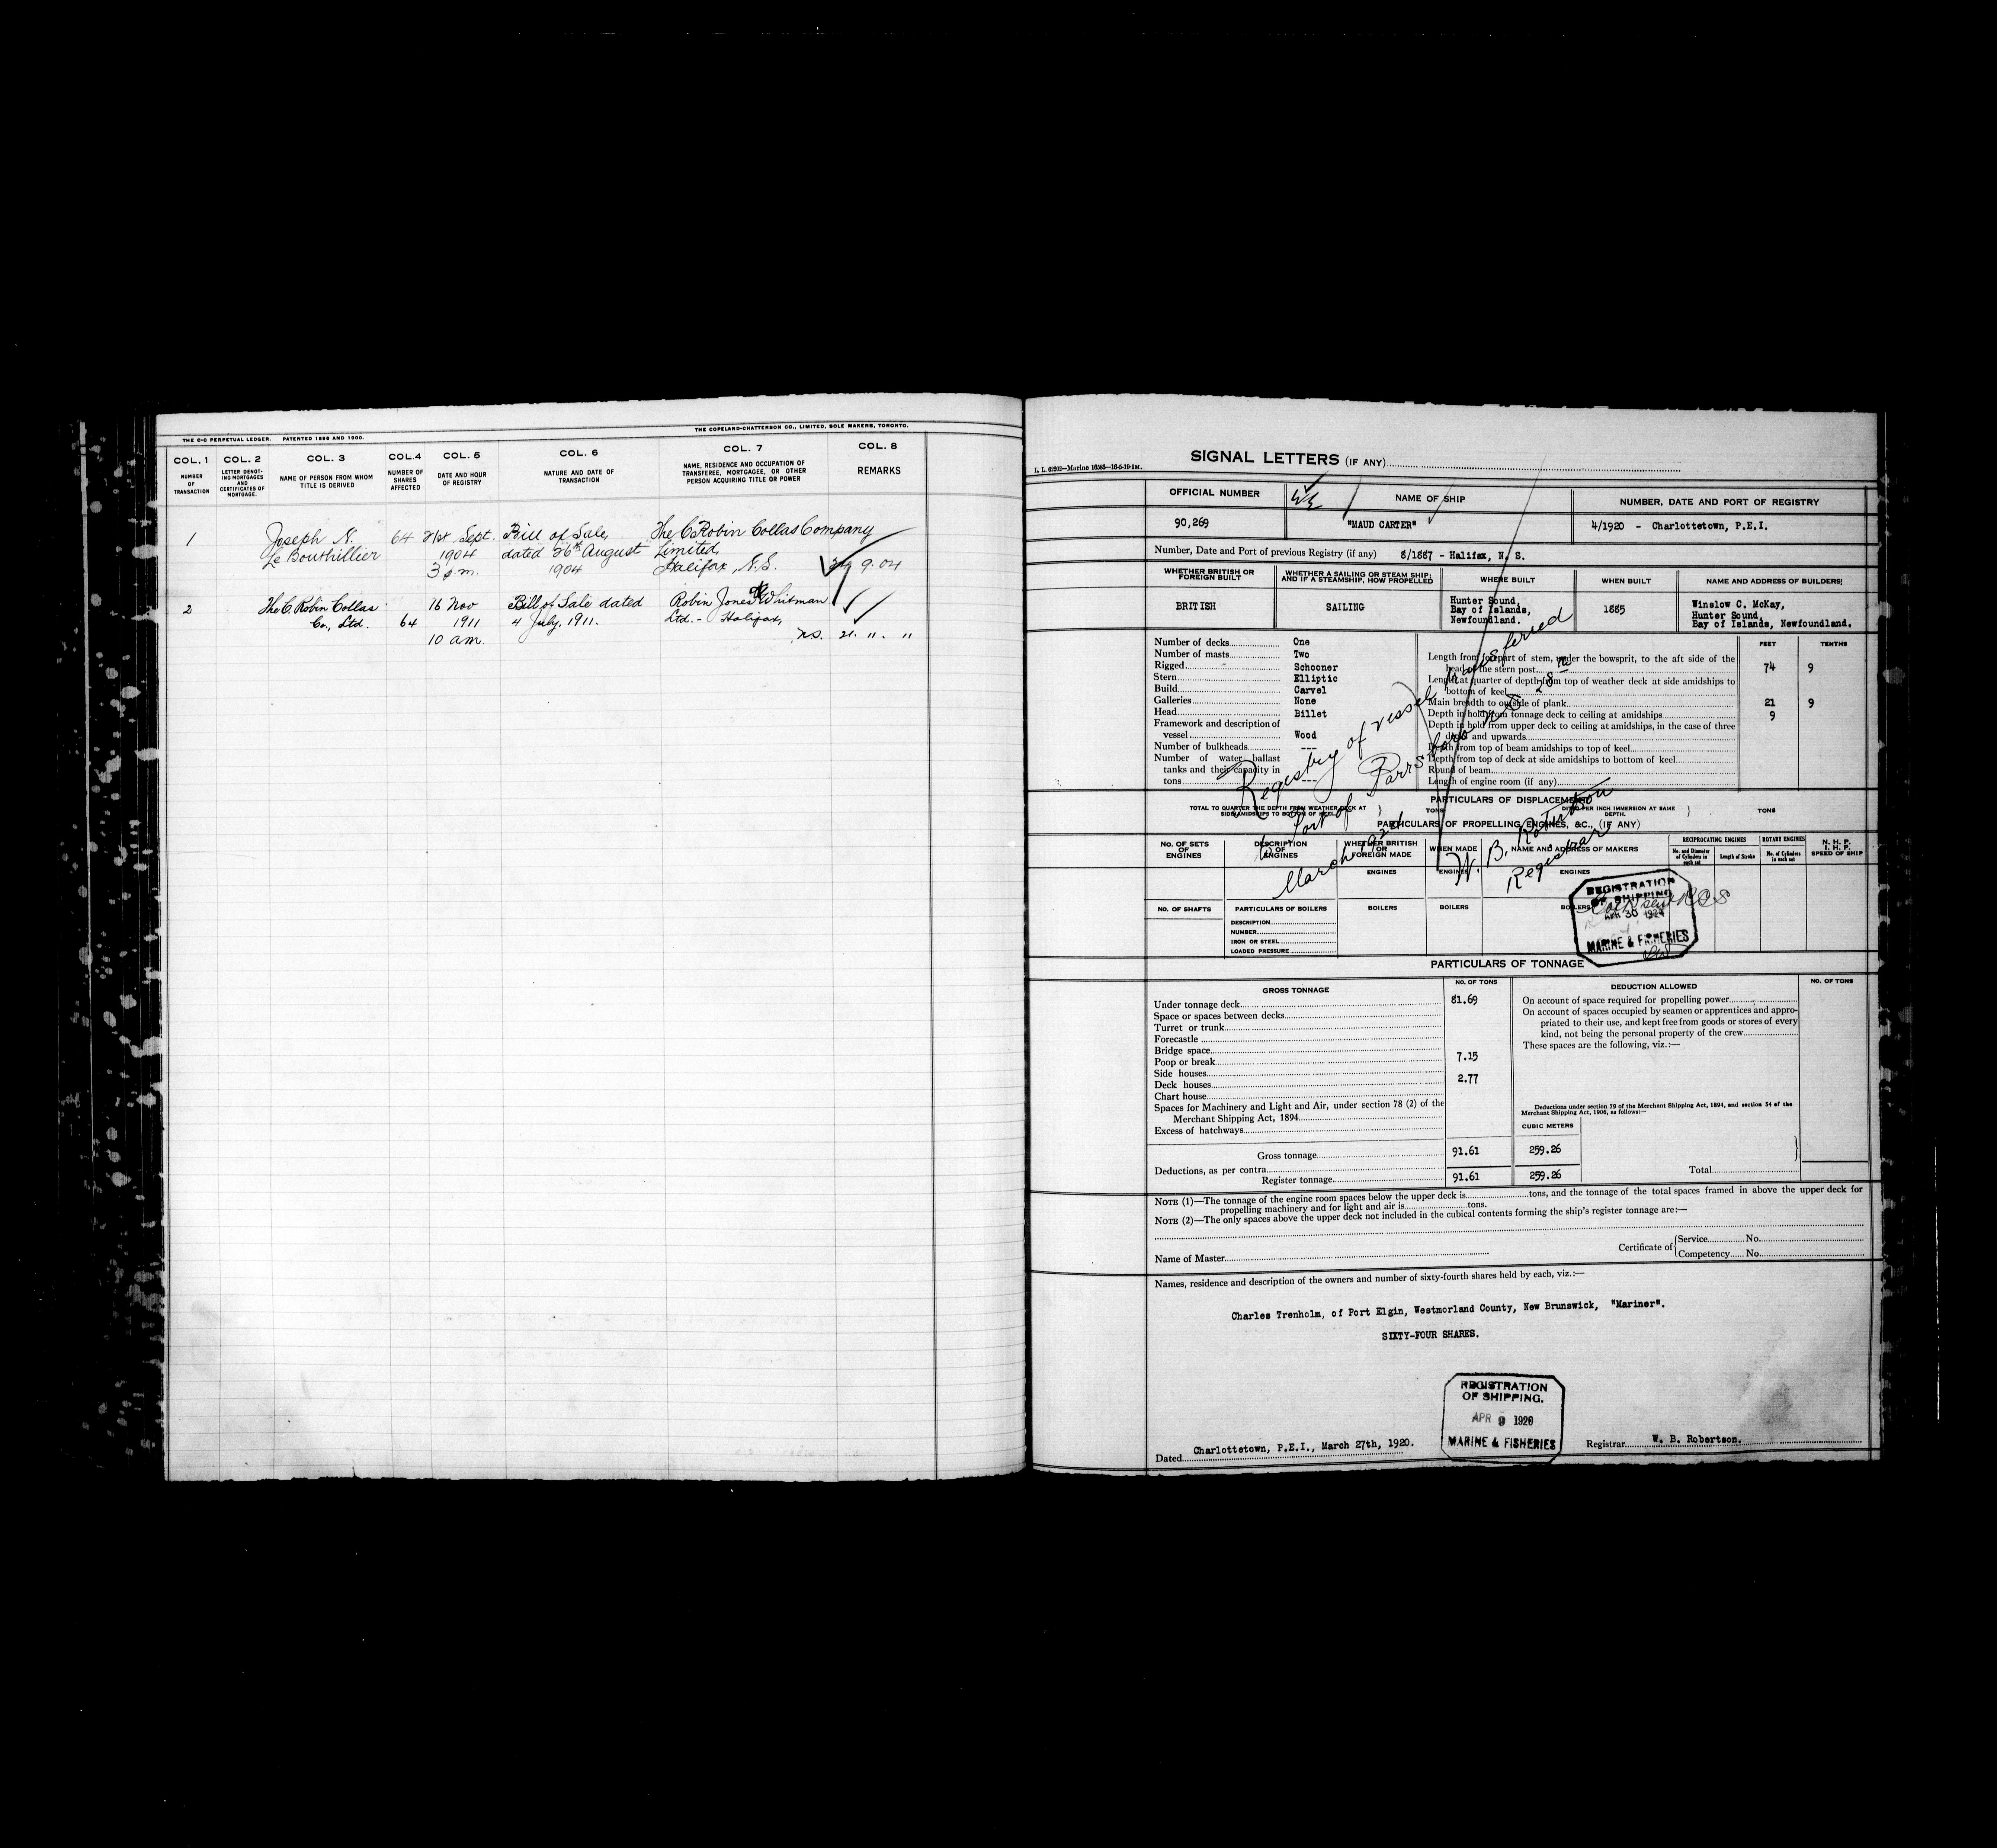 THE C-C PERPETUAL LEDGER. PATENTED 1898 AND 1900.
THE COPELAND-CHATTERSON CO., LIMITED, SOLE MAKERS, TORONTO.
COL. 1 COL. 2 COL. 3 COL. 4 COL. 5 COL. 6 COL. 7 COL. 8
NUMBER OF TRANSACTION
LETTER DENOTING MORTGAGES AND CERTIFICATES OF MORTGAGE.
NAME OF PERSON FROM WHOM TITLE IS DERIVED
NUMBER OF SHARES AFFECTED
DATE AND HOUR OF REGISTRY
NATURE AND DATE OF TRANSACTION
NAME, RESIDENCE AND OCCUPATION OF TRANSFEREE, MORTGAGEE, OR OTHER PERSON ACQUIRING TITLE OR POWER
REMARKS
1 Joseph N. 64 21st Sept. Bill of Sale The C Robin Collas Company
Le Bouthillier 1904 dated 26th August Limited
3 p.m. 1904 Halifax, N.S. 9.04
2 The C. Robin Collas 16 Nov Bill of Sale dated Robin Jones & Whitman
Co., Ltd. 64 1911 4 July, 1911. Ltd. - Halifax,
10 am. NS. 21. 11. "
SIGNAL LETTERS (IF ANY)
L. L. 62202—Marine 16585—16-5-19-1M.
OFFICIAL NUMBER NAME OF SHIP NUMBER, DATE AND PORT OF REGISTRY
90,269 "MAUD CARTER" 4/1920 - Charlottetown, P.E.I.
Number, Date and Port of previous Registry (if any) 8/1887 - Halifax, N. S.
WHETHER BRITISH OR FOREIGN BUILT
WHETHER A SAILING OR STEAM SHIP; AND IF A STEAMSHIP, HOW PROPELLED
WHERE BUILT
WHEN BUILT
NAME AND ADDRESS OF BUILDERS
BRITISH SAILING
Hunter Sound,
Bay of Islands,
Newfoundland.
1885
Winslow C. McKay,
Hunter Sound,
Bay of Islands, Newfoundland.
Number of decks One
Number of masts Two
Rigged Schooner
Stern Elliptic
Build Carvel
Galleries None
Head Billet
Framework and description of
vessel Wood
Number of bulkheads ---
Number of water ballast
tanks and their capacity in
tons ---
FEET TENTHS
Length from forepart of stem, under the bowsprit, to the aft side of the
head of the stern post 74 9
Length at quarter of depth from top of weather deck at side amidships to
bottom of keel
Main breadth to outside of plank 21 9
Depth in hold from tonnage deck to ceiling at amidships 9
Depth in hold from upper deck to ceiling at amidships, in the case of three
decks and upwards
Depth from top of beam amidships to top of keel
Depth from top of deck at side amidships to bottom of keel
Round of beam
Length of engine room (if any)
Registry of vessel transferred
to Port of Parrsboro N S 28th
March 1924
W. B. Robertson
Registrar
PARTICULARS OF DISPLACEMENT
TOTAL TO QUARTER THE DEPTH FROM WEATHER DECK AT SIDE AMIDSHIPS TO BOTTOM OF KEEL TONS
DITTO PER INCH IMMERSION AT SAME DEPTH. TONS
PARTICULARS OF PROPELLING ENGINES, &C., (IF ANY)
NO. OF SETS OF ENGINES
DESCRIPTION OF ENGINES
WHETHER BRITISH OR FOREIGN MADE
WHEN MADE
NAME AND ADDRESS OF MAKERS
RECIPROCATING ENGINES
No. and Diameter of Cylinders in each set
Length of Stroke
ROTARY ENGINES
No. of Cylinders in each set
N. H. P.
I. H. P.
SPEED OF SHIP
ENGINES ENGINES ENGINES
NO. OF SHAFTS PARTICULARS OF BOILERS BOILERS BOILERS BOILERS
DESCRIPTION
NUMBER
IRON OR STEEL
LOADED PRESSURE
REGISTRATION
OF SHIPPING
APR 30 1924
MARINE & FISHERIES
PARTICULARS OF TONNAGE
GROSS TONNAGE NO. OF TONS
Under tonnage deck 81.69
Space or spaces between decks
Turret or trunk
Forecastle
Bridge space
Poop or break 7.15
Side houses
Deck houses 2.77
Chart house
Spaces for Machinery and Light and Air, under section 78 (2) of the
Merchant Shipping Act, 1894
Excess of hatchways
Gross tonnage 91.61 259.26
Deductions, as per contra
Register tonnage 91.61 259.26
DEDUCTION ALLOWED NO. OF TONS
On account of space required for propelling power
On account of spaces occupied by seamen or apprentices and appro-
priated to their use, and kept free from goods or stores of every
kind, not being the personal property of the crew
These spaces are the following, viz.:—
Deductions under section 79 of the Merchant Shipping Act, 1894, and section 54 of the
Merchant Shipping Act, 1906, as follows:—
CUBIC METERS
Total
NOTE (1)—The tonnage of the engine room spaces below the upper deck is tons, and the tonnage of the total spaces framed in above the upper deck for
propelling machinery and for light and air is tons.
NOTE (2)—The only spaces above the upper deck not included in the cubical contents forming the ship's register tonnage are:—
Name of Master
Certificate of Service No.
Competency No.
Names, residence and description of the owners and number of sixty-fourth shares held by each, viz.:—
Charles Trenholm, of Port Elgin, Westmorland County, New Brunswick, "Mariner".
SIXTY-FOUR SHARES.
REGISTRATION
OF SHIPPING.
APR 9 1920
MARINE & FISHERIES
Dated Charlottetown, P.E.I., March 27th, 1920.
Registrar W. B. Robertson.